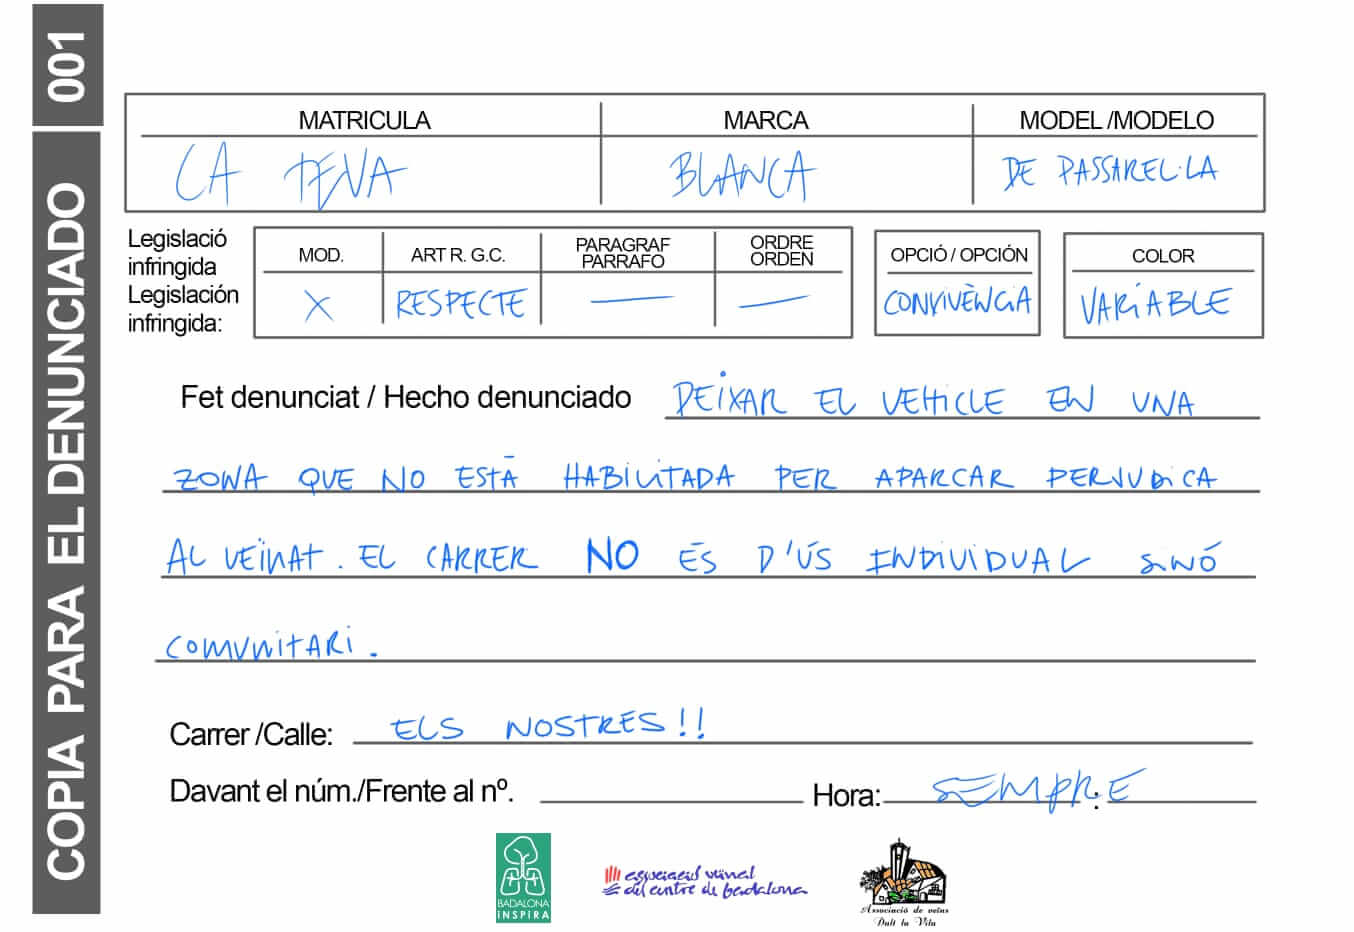 001
COPIA PARA EL DENUNCIADO
MATRICULA MARCA MODEL /MODELO
LA TEVA BLANCA DE PASSAREL·LA
Legislació infringida
Legislación infringida:
MOD. ART R. G.C. PARAGRAF PARRAFO ORDRE ORDEN OPCIÓ / OPCIÓN COLOR
X RESPECTE — — CONVIVÈNCIA VARIABLE
Fet denunciat / Hecho denunciado DEIXAR EL VEHICLE EN UNA
ZONA QUE NO ESTÀ HABILITADA PER APARCAR PERJUDICA
AL VEÏNAT. EL CARRER NO ÉS D'ÚS INDIVIDUAL SINÓ
COMUNITARI.
Carrer /Calle: ELS NOSTRES!!
Davant el núm./Frente al nº. Hora: SEMPRE :
BADALONA
iNSPIRA
associació veïnal
del centre de badalona
Associació de veïns
Dalt la Vila